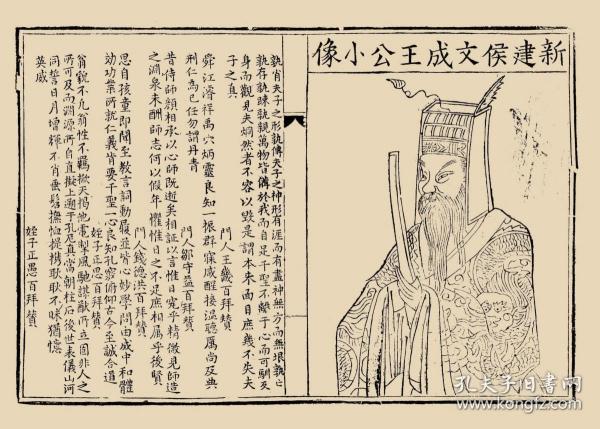 新建侯文成王公小像
孰肖夫子之形孰傳夫子之神形有涯而有盡神無方而無垠孰亡
孰存孰疎孰親萬物皆備於我而自足千聖不離于心而可馴反
身而觀見夫炯然者不容以毀是謂本來面目庶幾不失夫
子之真
門人王畿百拜贊
舜江濬祥禹穴炳靈良知一振群寐咸醒接溫聽厲尚及典
刑仁為己任勿謂丹青
門人鄒守益百拜贊
昔侍師顏相承以心師既逝矣相証以言惟日究乎精微見師造
之淵泉未酬師志何以假年懼惟日之不足庶相屬乎後賢
門人錢德洪百拜贊
思自孩童即聞至教言詞動履並皆心妙學問由成中和體
効功業所就仁義肯要千聖一心良知孔竅俯仰古今至誠合道
姪子正思百拜贊
翁貌不凡翁性不羈掀天揭地電掣風馳謨猷所立固非人之
所可及而淵源所自直擬上遡乎孔尼真當朝柱石後世表儀山河
同誓日月增輝不肖垂髫撫恤提携耿耿不昧猶憶
英威
姪子正愚百拜贊
孔夫子旧书网
www.kongfz.com